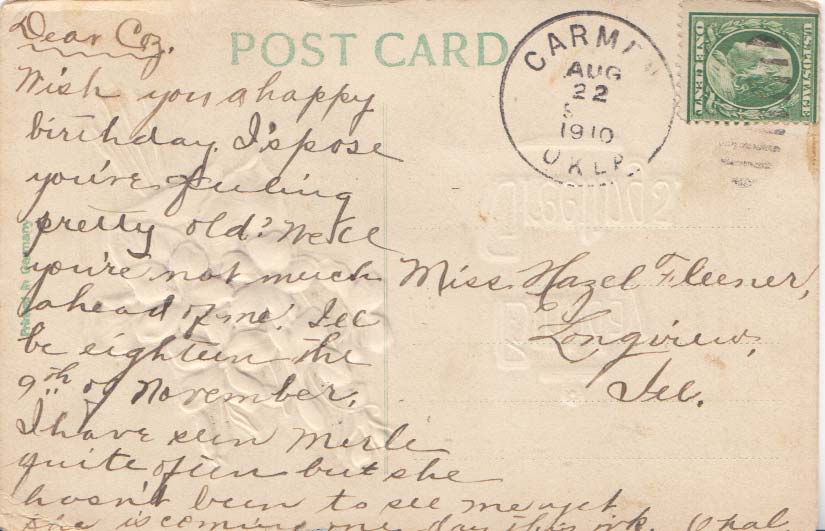 Dear Coz.
Wish you a happy
birthday. I'spose
you're feeling
pretty old? Well
you're not much
ahead of me. I'll
be eighteen the
9th of November.
I have seen Merle
quite often but she
hasn't been to see me yet
she is coming one day this wk. Opal
POST CARD
CARMEN
AUG
22
1910
OKLA.
U.S. POSTAGE
ONE CENT
Miss Hazel Fleener,
Longview,
Ill.
Printed in Germany
Greetings